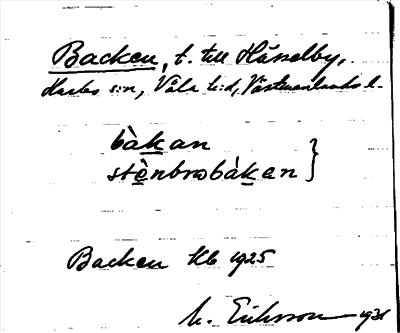 Backen, t. till Hässelby,
Harbo s:n, Våla h:d, Västmanlands l.
bàkan
stènbrobàkan }
Backen Kb 1925
M. Eriksson 1931